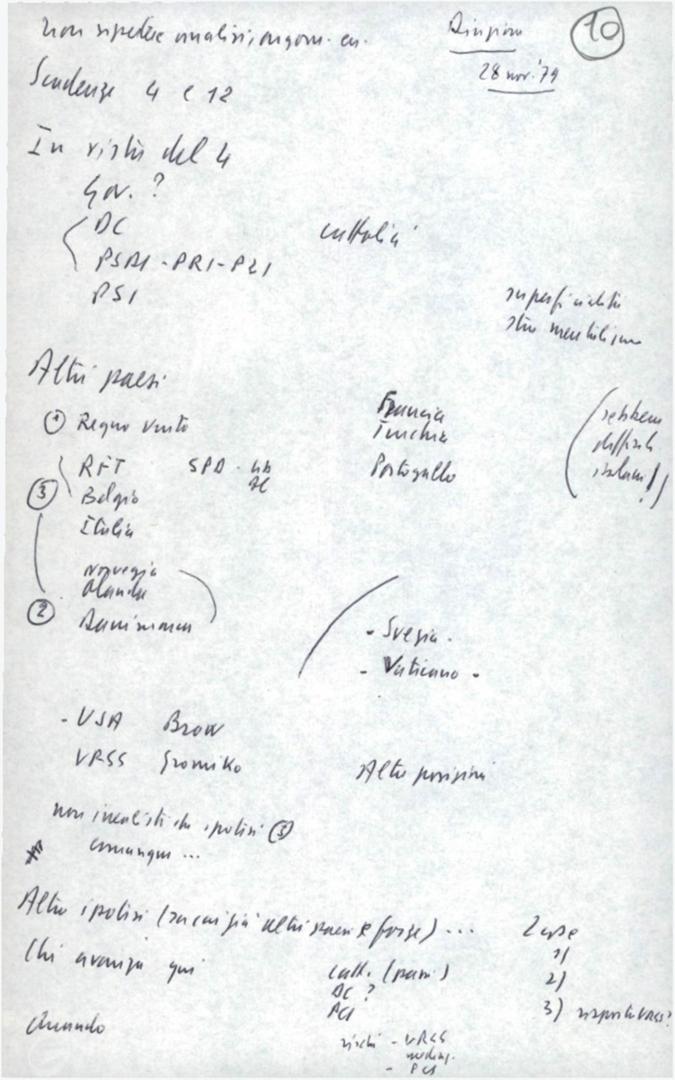 non ripetere analisi, argom. ecc.
Direzione
10
28 nov. '79
Scadenze 4 e 12
In vista del 4
Gov. ?
DC
cattolici
PSDI - PRI - PLI
PSI
superficialità
strumentalismo
Altri paesi
1 Regno Unito
Francia
Turchia
RFT SPD
Portogallo
3 Belgio
Italia
Norvegia
Olanda
2 Danimarca
- Svezia -
- Vaticano -
- USA Brow
URSS Gromiko
Altre posizioni
non ipotesi 3
comunque ...
Altre ipotesi (su cui già altri paesi e forze) ...
2 fase
1)
Chi avanza qui
catt. (parr.)
2)
DC ?
PCI
3) risposta URSS?
Quando
rischi - URSS
- PCI